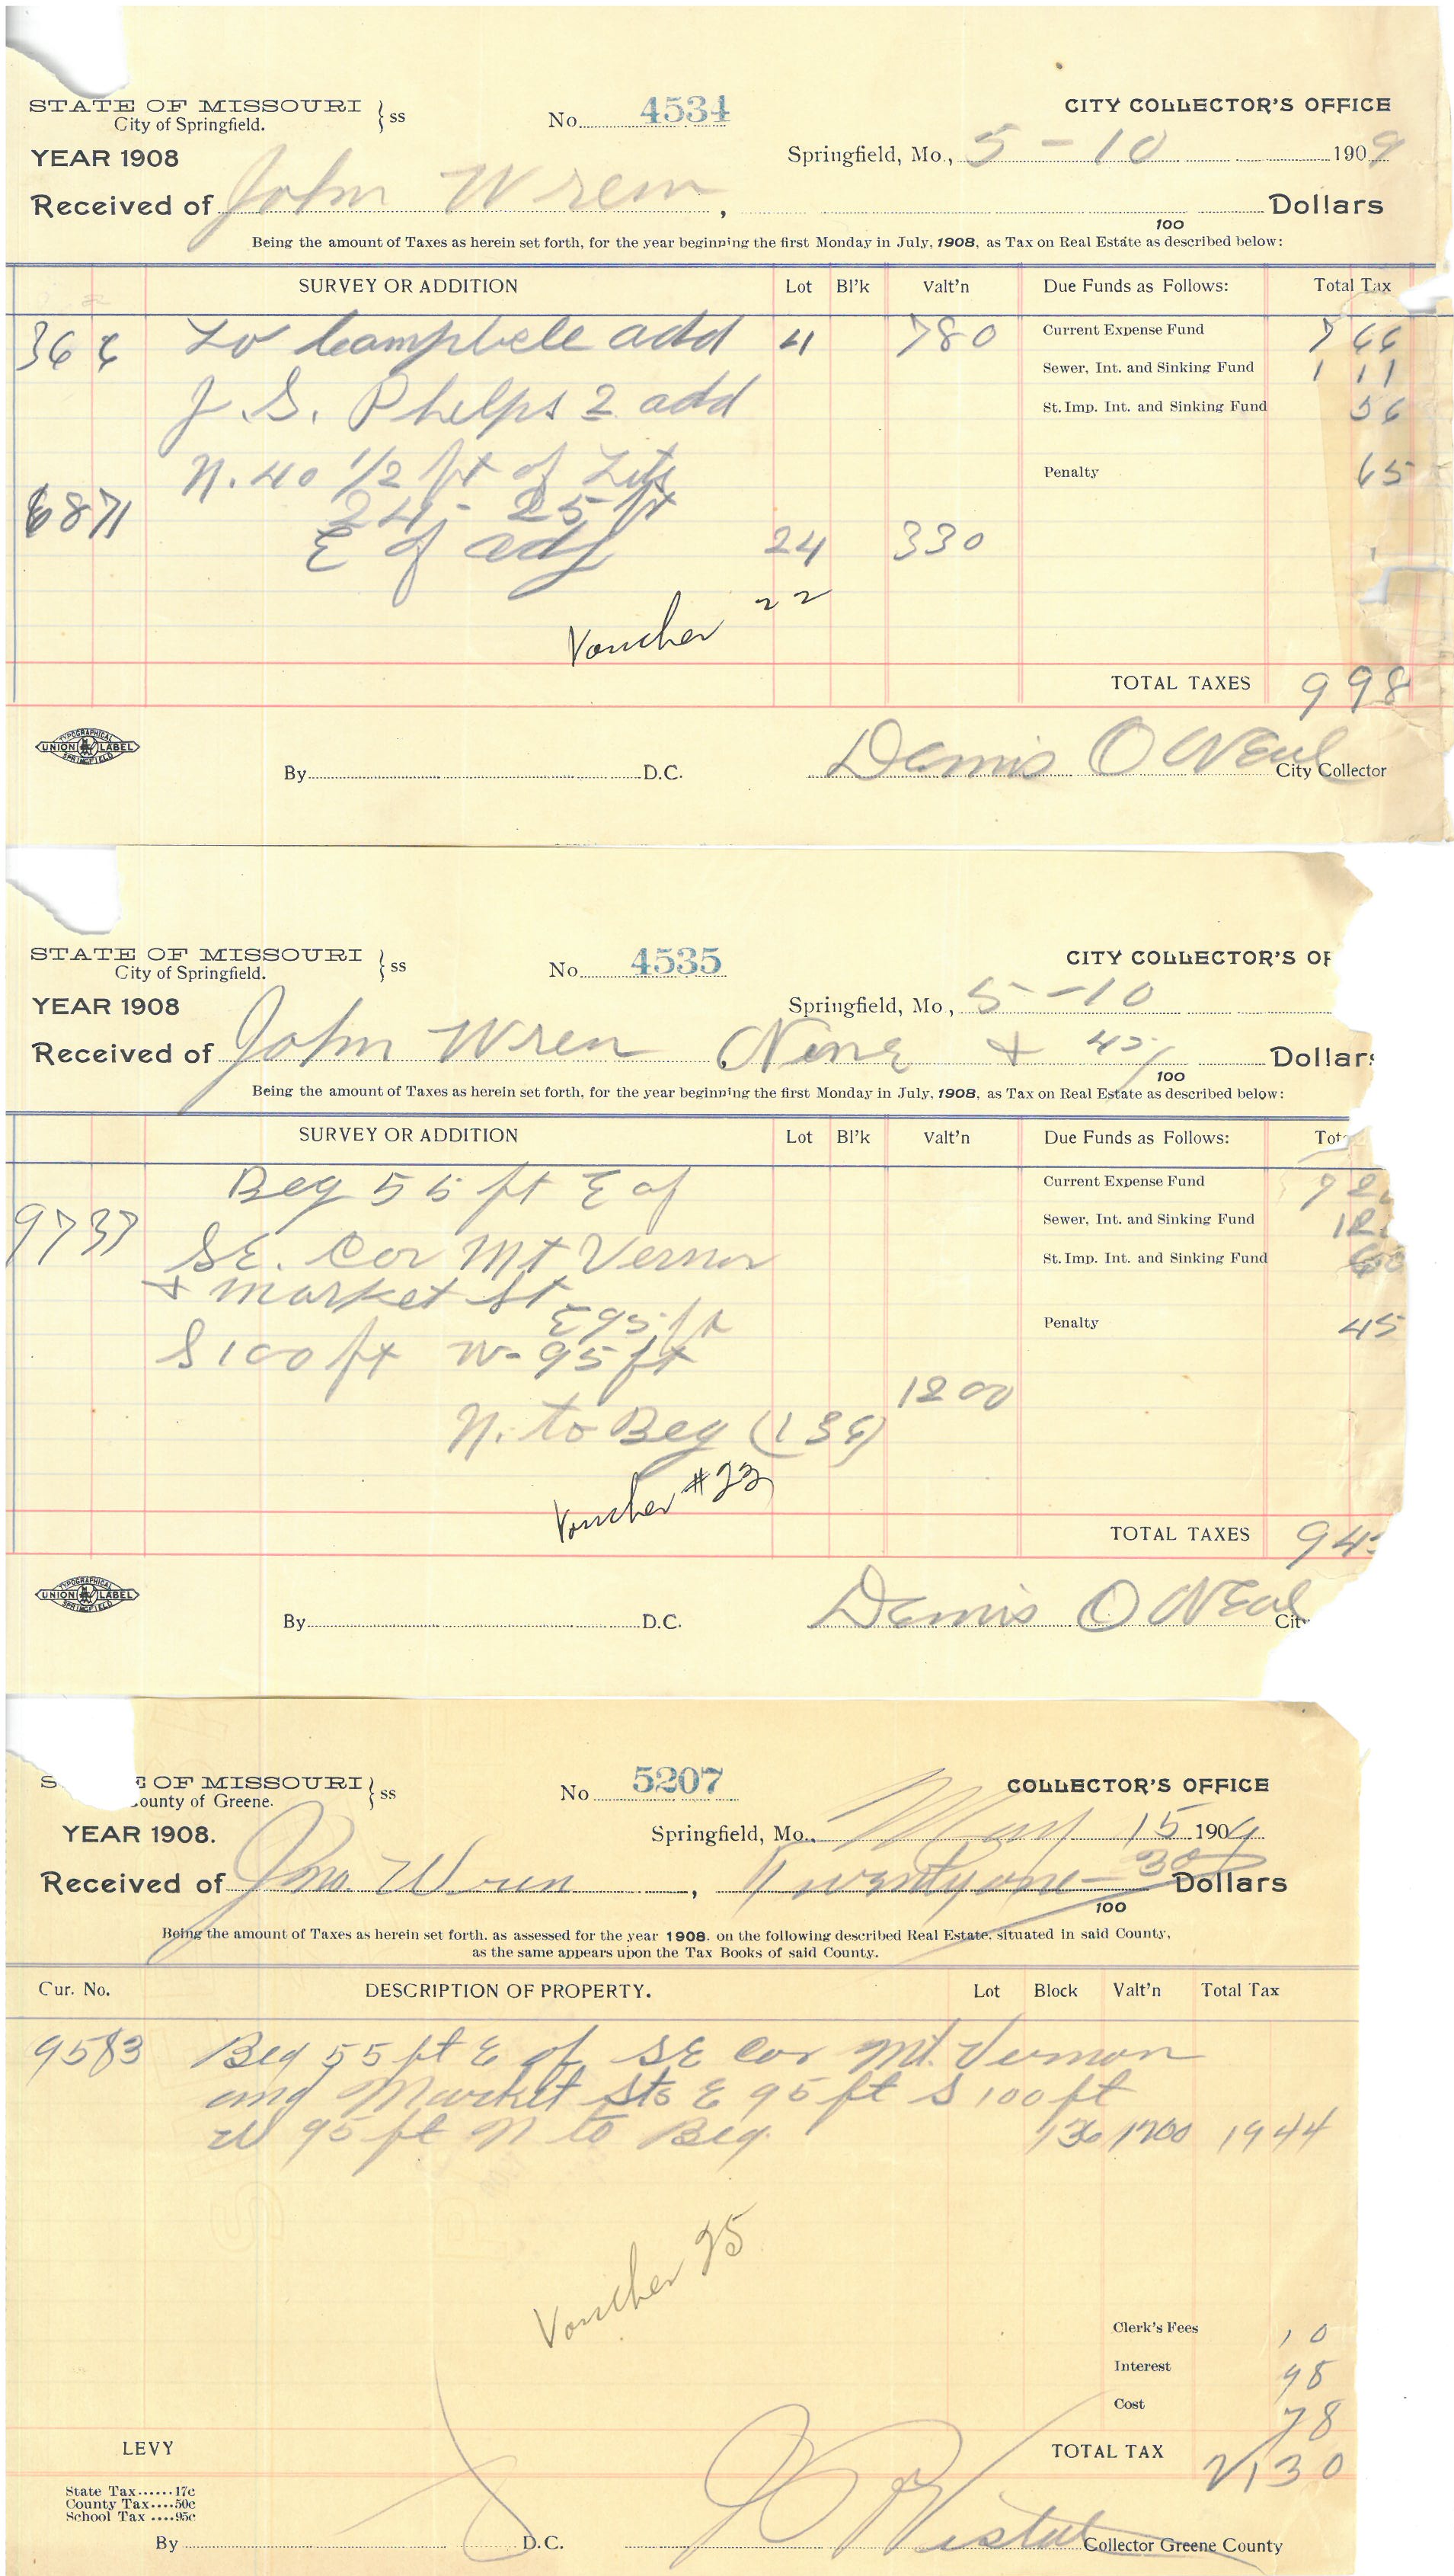 STATE OF MISSOURI } ss No. 4534 CITY COLLECTOR'S OFFICE
City of Springfield.
YEAR 1908 Springfield, Mo., 5-10 1909
Received of John Wren, Dollars
100
Being the amount of Taxes as herein set forth, for the year beginning the first Monday in July, 1908, as Tax on Real Estate as described below:
SURVEY OR ADDITION Lot Bl'k Valt'n Due Funds as Follows: Total Tax
Campbell add 4 780 Current Expense Fund 7 66
Sewer, Int. and Sinking Fund 1 11
J. S. Phelps 2 add St. Imp. Int. and Sinking Fund 56
N. 40 1/2 ft of Lots Penalty 65
6871 24 - 25 ft
E of adj 24 330
Voucher 22
TOTAL TAXES 9 98
TYPOGRAPHICAL UNION LABEL SPRINGFIELD
By D.C. Dennis O'Neal City Collector
STATE OF MISSOURI } ss No. 4535 CITY COLLECTOR'S OF
City of Springfield.
YEAR 1908 Springfield, Mo., 5-10
Received of John Wren Nine + 45/100 Dollar
Being the amount of Taxes as herein set forth, for the year beginning the first Monday in July, 1908, as Tax on Real Estate as described below:
SURVEY OR ADDITION Lot Bl'k Valt'n Due Funds as Follows: Tot
Beg 55 ft E of Current Expense Fund
9737 Sewer, Int. and Sinking Fund
SE. Cor Mt Vernon St. Imp. Int. and Sinking Fund 60
+ Market St
E 95 ft Penalty 45
S 100 ft W- 95 ft
1200
N. to Beg
Voucher #23
TOTAL TAXES 9 4
TYPOGRAPHICAL UNION LABEL SPRINGFIELD
By D.C. Dennis O'Neal Cit
S E OF MISSOURI } ss No 5207 COLLECTOR'S OFFICE
ounty of Greene.
YEAR 1908. Springfield, Mo., May 15 1909
Received of Jno. Wren, Twentyone - 30/100 Dollars
Being the amount of Taxes as herein set forth, as assessed for the year 1908, on the following described Real Estate, situated in said County,
as the same appears upon the Tax Books of said County.
Cur. No. DESCRIPTION OF PROPERTY. Lot Block Valt'n Total Tax
9583 Beg 55 ft E of SE Cor Mt. Vernon
and Market Sts E 95 ft S 100 ft
W 95 ft N to Beg. 136 1200 19 44
Voucher 25
Clerk's Fees 10
Interest 98
Cost 78
LEVY TOTAL TAX 21 30
State Tax......17c
County Tax....50c
School Tax ....95c
By D.C. Collector Greene County